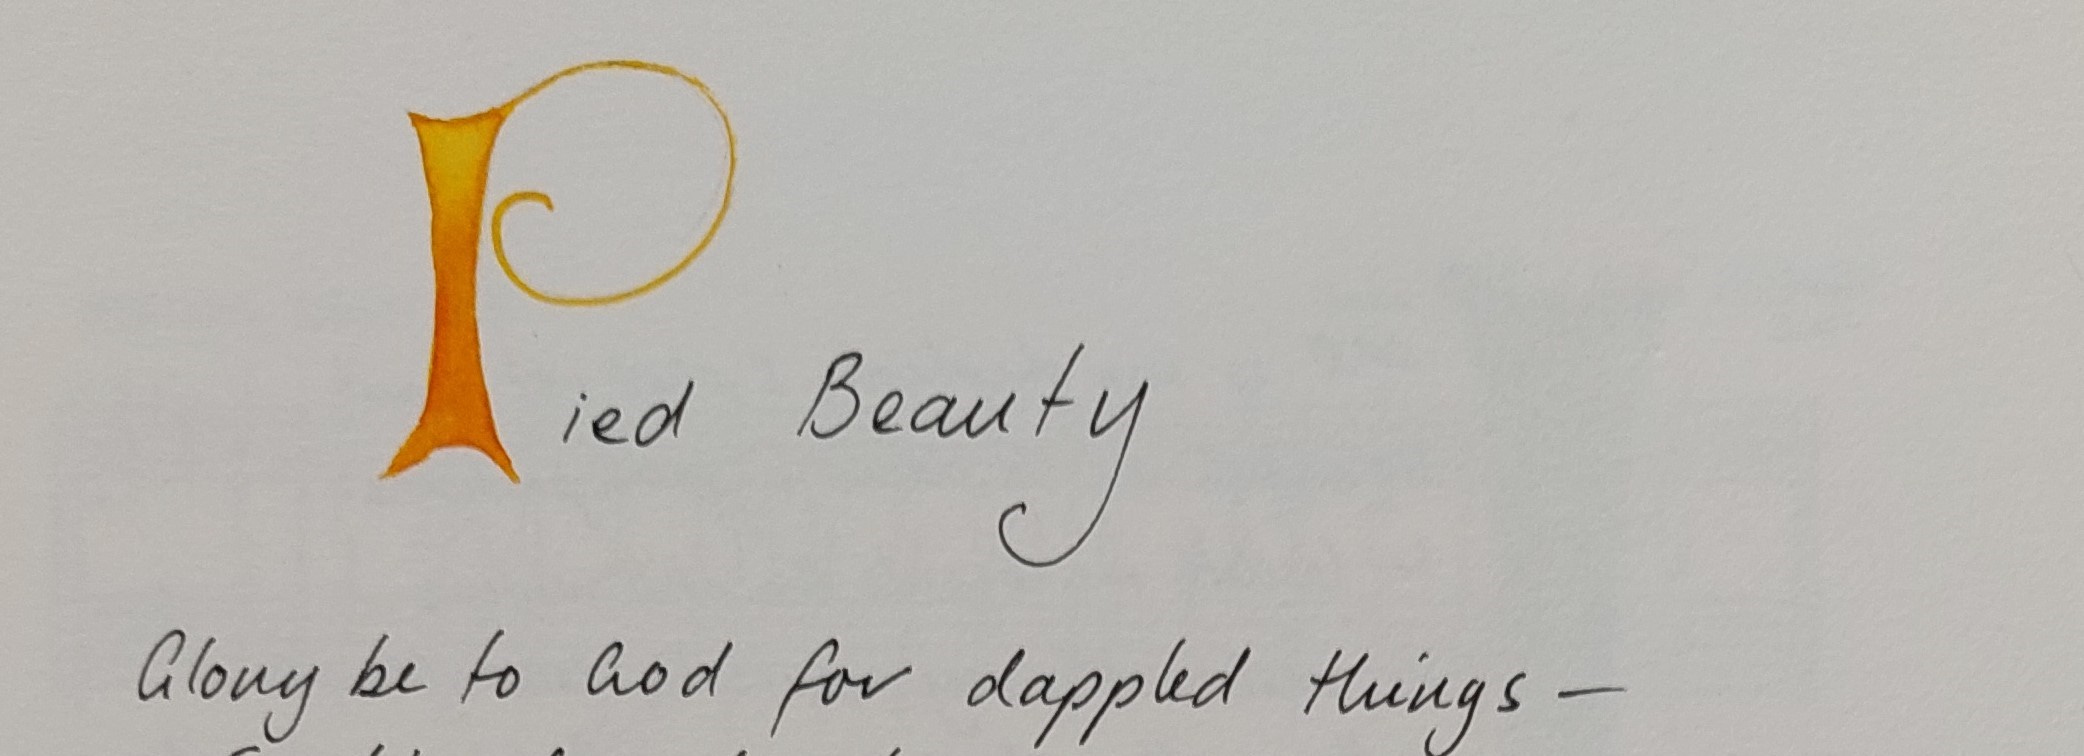 Pied Beauty
Glory be to God for dappled things –